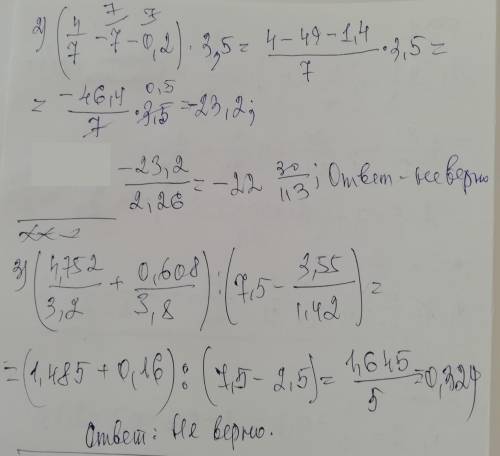 7 7
2) (4/7 - 7 - 0,2) · 3,5 = (4 - 49 - 1,4)/7 · 3,5 =
= (-46,4)/7 · 3,5 0,5 = -23,2;
(-23,2)/2,26 = -22 30/113; Ответ - не верно
3) (4,752/3,2 + 0,608/3,8) : (7,5 - 3,55/1,42) =
= (1,485 + 0,16) : (7,5 - 2,5) = 1,645/5 = 0,329
Ответ: Не верно.